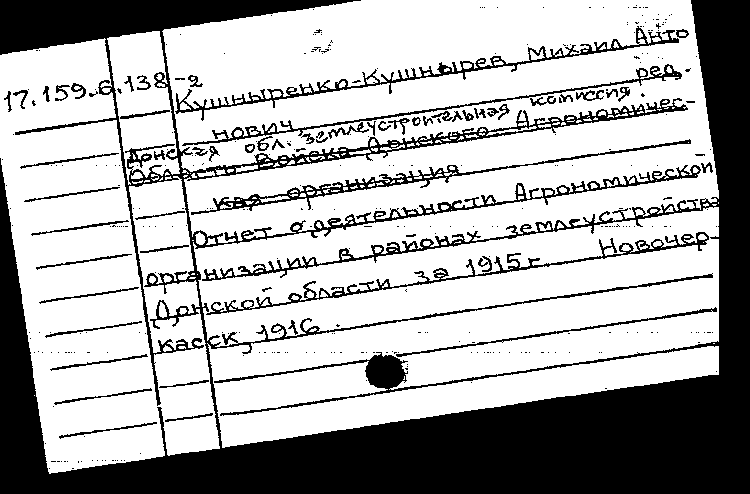 17.159.6.138-2
Кушныренко-Кушнырев, Михаил Анто
нович ред.
Донская обл. землеустроительная комиссия.
Область Войска Донского. Агрономичес-
кая организация
Отчет о деятельности Агрономической
организации в районах землеустройства
Донской области за 1915 г. Новочер-
касск, 1916.